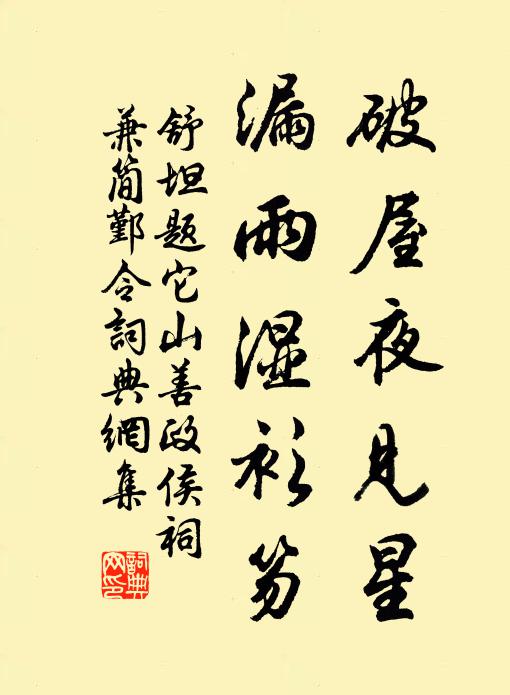 破屋夜見星
漏雨湿衫笏
舒坦题它山善政侯祠
兼简鄞令詞典網集
詞典網印